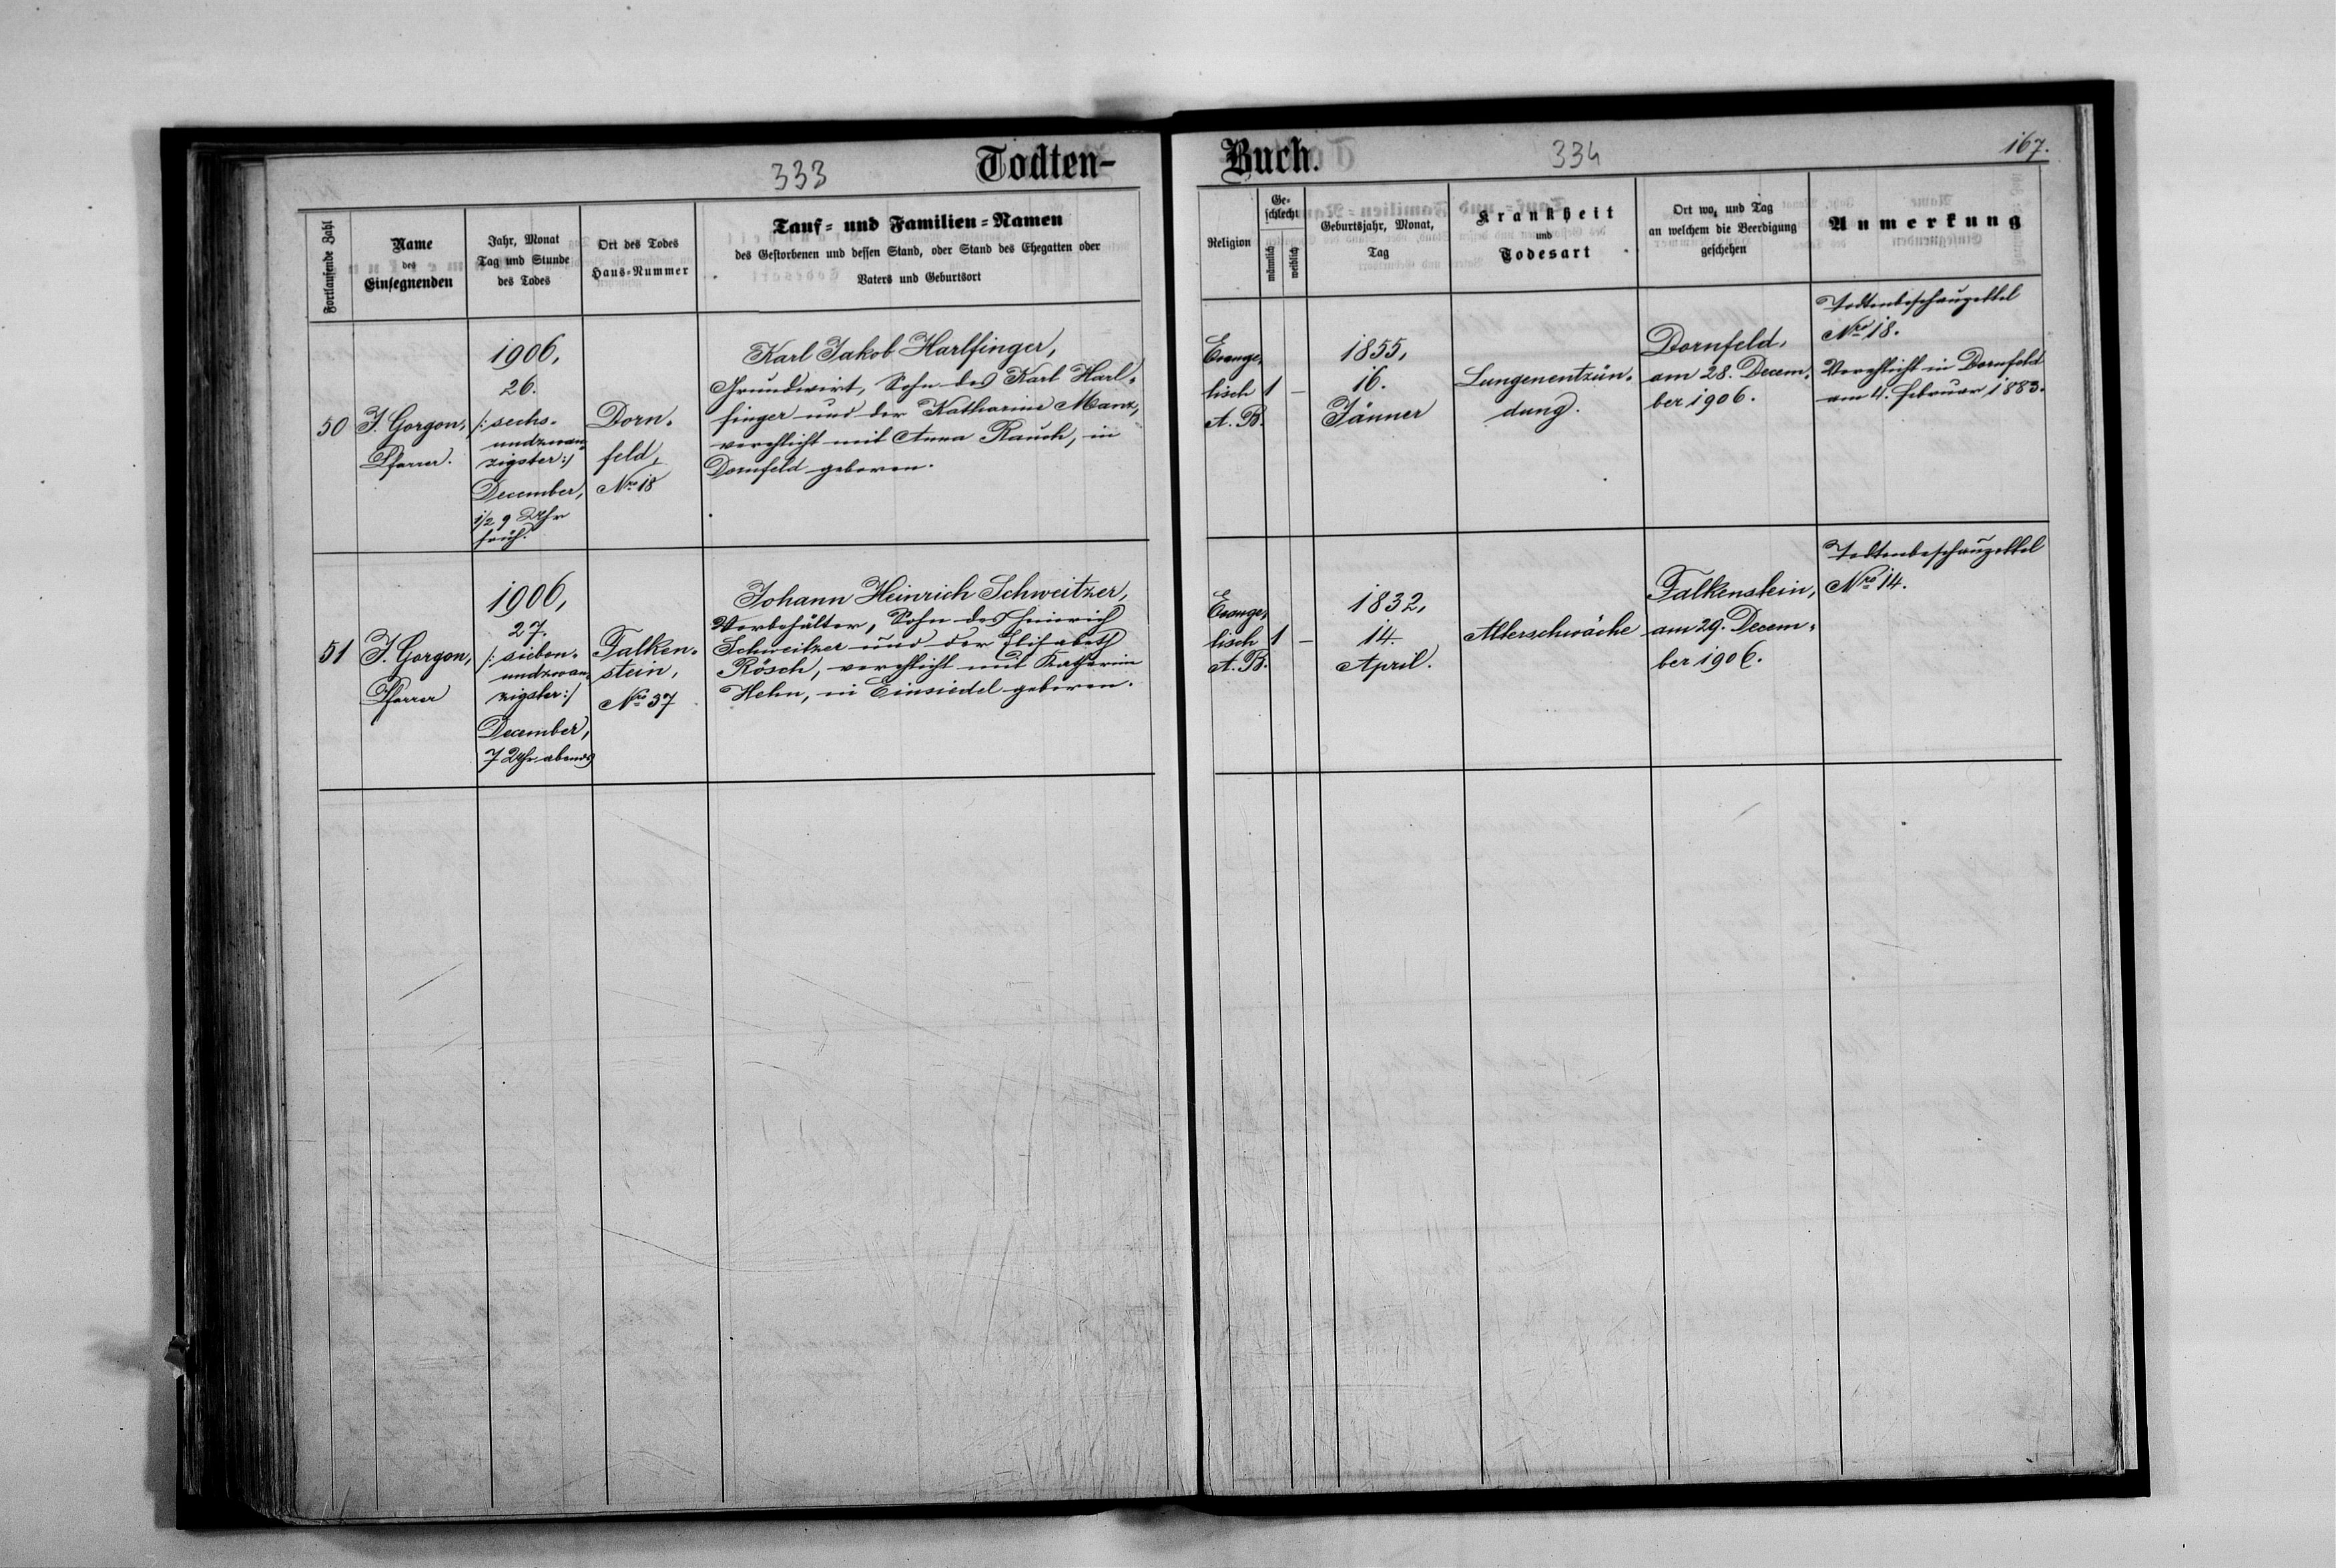 333
Todten-
Fortlaufende Zahl
Name
des
Einsegnenden
Jahr, Monat
Tag und Stunde
des Todes
Ort des Todes
Haus-Nummer
Tauf- und Familien-Namen
des Gestorbenen und dessen Stand, oder Stand des Ehegatten oder
Vaters und Geburtsort
50
J. Gorgon,
Pfarrer.
1906,
26.
/: sechs-
undzwan-
zigster :/
December,
1/2 9 Uhr
früh.
Dorn-
feld,
Nro 18
Karl Jakob Harlfinger,
Grundwirt, Sohn des Karl Harl-
finger und der Katharine Manz,
verehlicht mit Anna Rauch, in
Dornfeld geboren.
51
J. Gorgon,
Pfarrer
1906,
27.
/: sieben-
undzwan-
zigster :/
December,
7 Uhr abends
Falken-
stein,
Nro 37
Johann Heinrich Schweitzer,
Vorbehälter, Sohn des Heinrich
Schweitzer und der Elisabeth
Rösch, verehlicht mit Katharina
Hehn, in Einsiedel geboren.
Buch.
334
167.
Religion
Ge-
schlecht
männlich
weiblich
Geburtsjahr, Monat,
Tag
Krankheit
und
Todesart
Ort wo, und Tag
an welchem die Beerdigung
geschehen
Anmerkung
Evange-
lisch
A. B.
1
–
1855,
16.
Jänner
Lungenentzün-
dung.
Dornfeld,
am 28. Decem-
ber 1906.
Todtenbeschauzettel
Nro 18.
Verehlicht in Dornfeld
am 4. Februar 1883.
Evange-
lisch
A. B.
1
–
1832,
14.
April.
Altersschwäche
Falkenstein,
am 29. Decem-
ber 1906.
Todtenbeschauzettel
Nro 14.